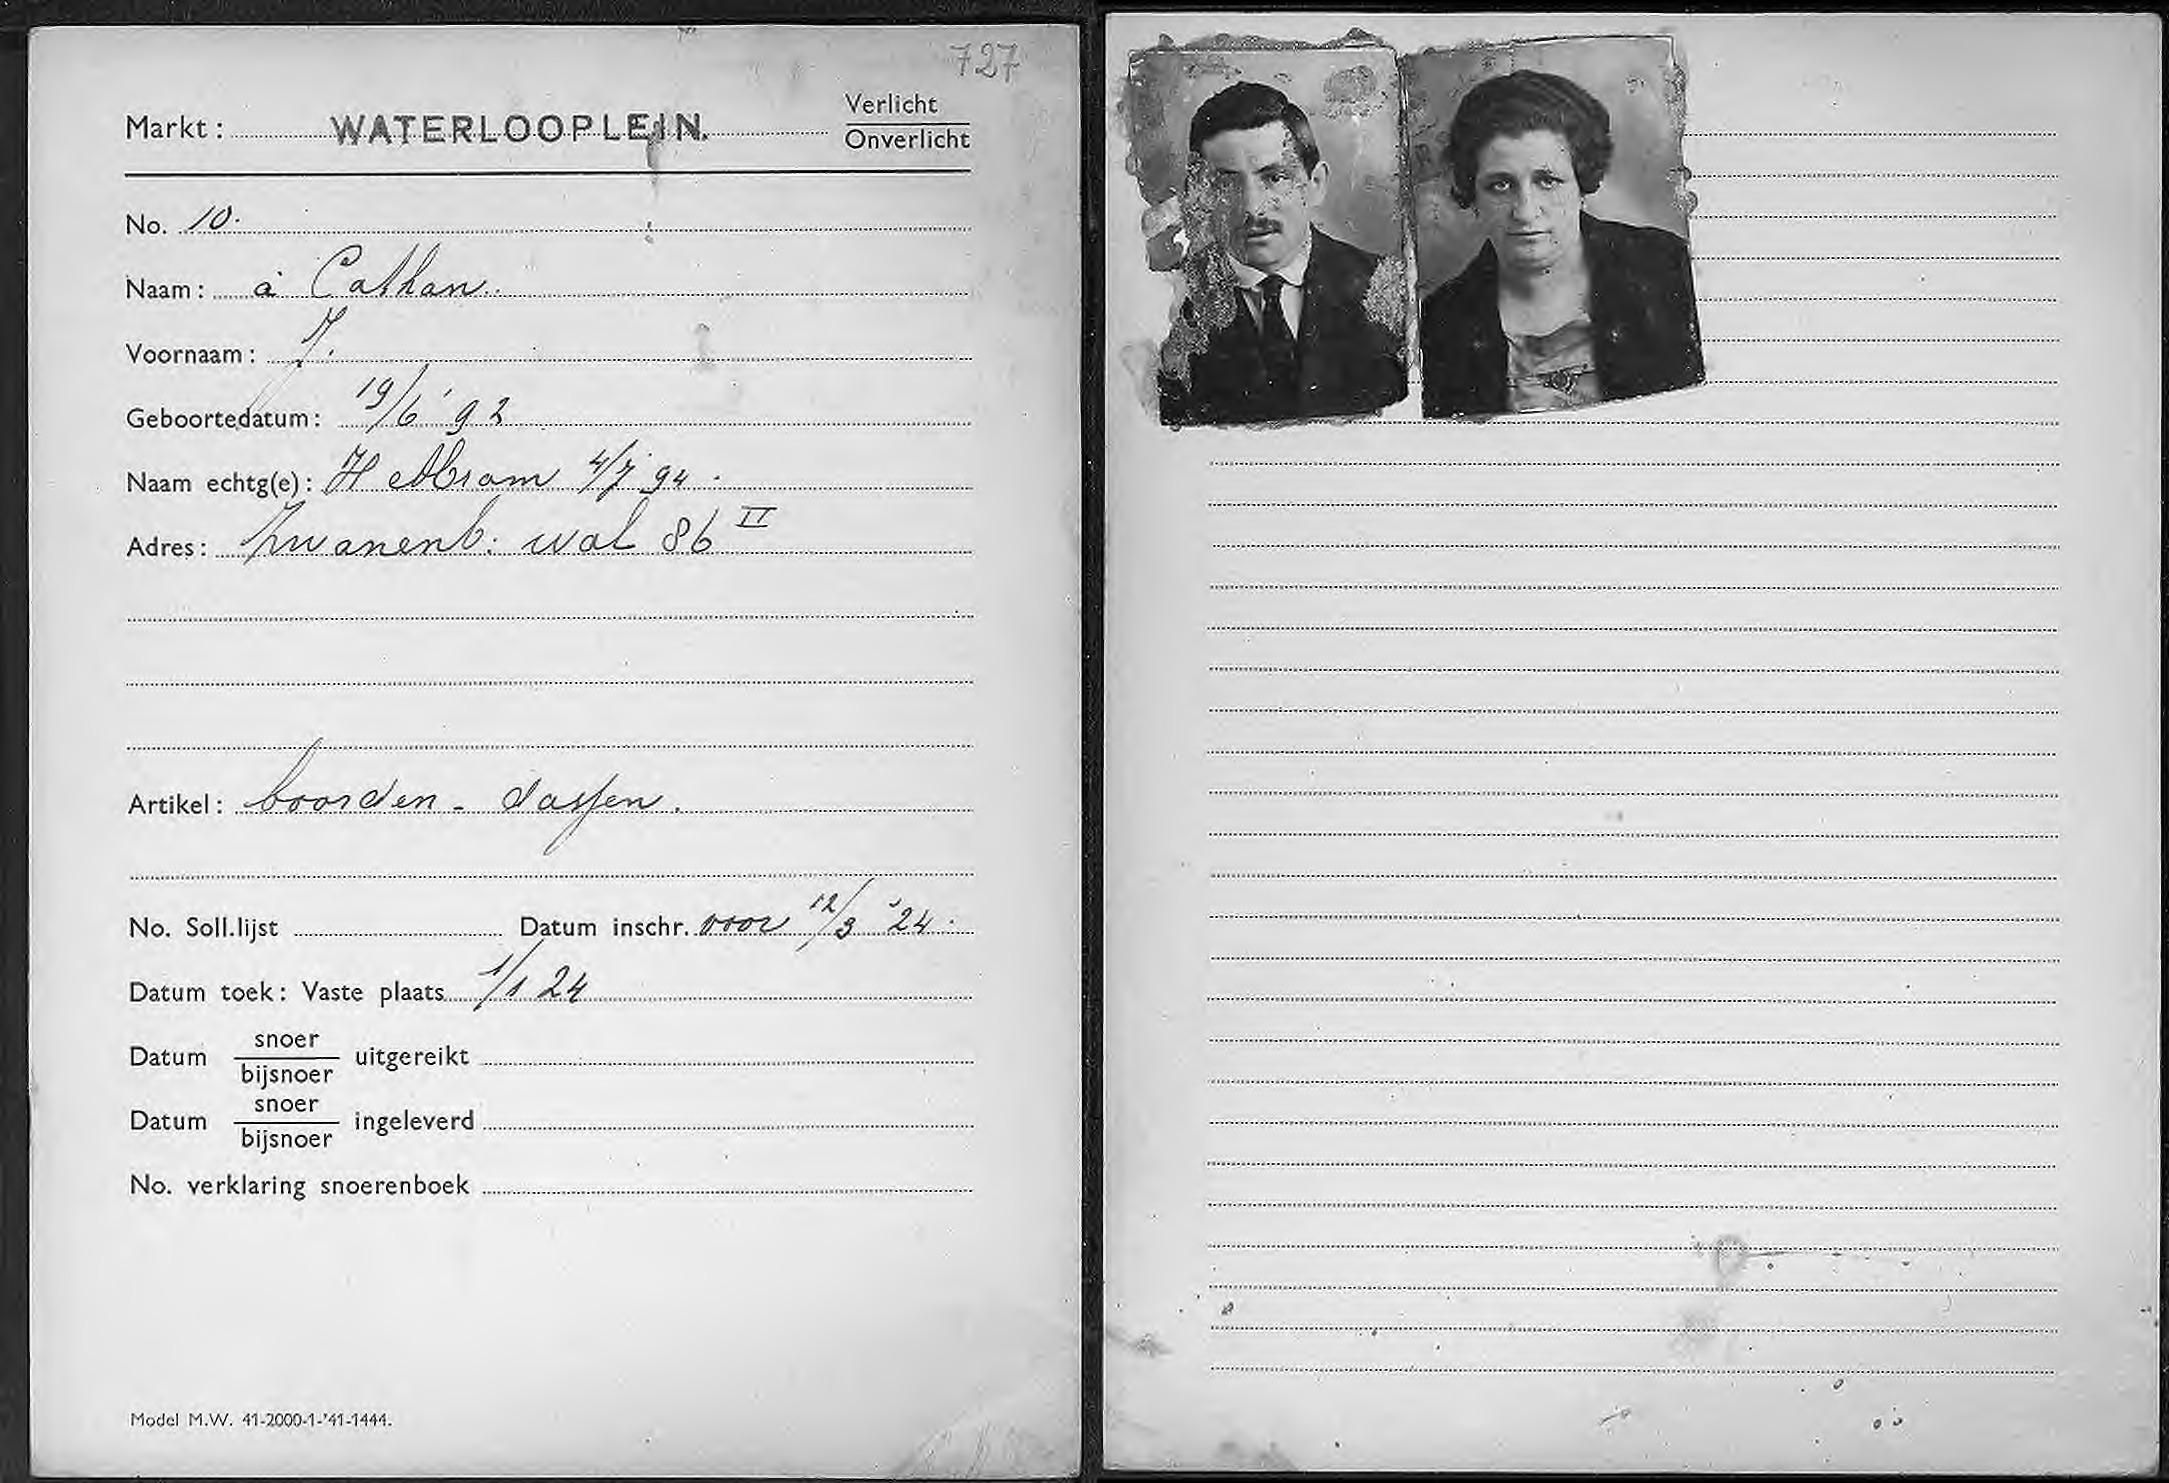 727
Markt: WATERLOOPLEIN. Verlicht
Onverlicht
No. 10.
Naam: à Cathan.
Voornaam: J.
Geboortedatum: 19/6 '92
Naam echtg(e): H Abram 4/7 94.
Adres: Zwanenb. wal 86 II
Artikel: boorden - dassen.
No. Soll.lijst Datum inschr. voor 12/3 '24.
Datum toek: Vaste plaats 1/1 24
Datum snoer
bijsnoer uitgereikt
Datum snoer
bijsnoer ingeleverd
No. verklaring snoerenboek
Model M.W. 41-2000-1-'41-1444.